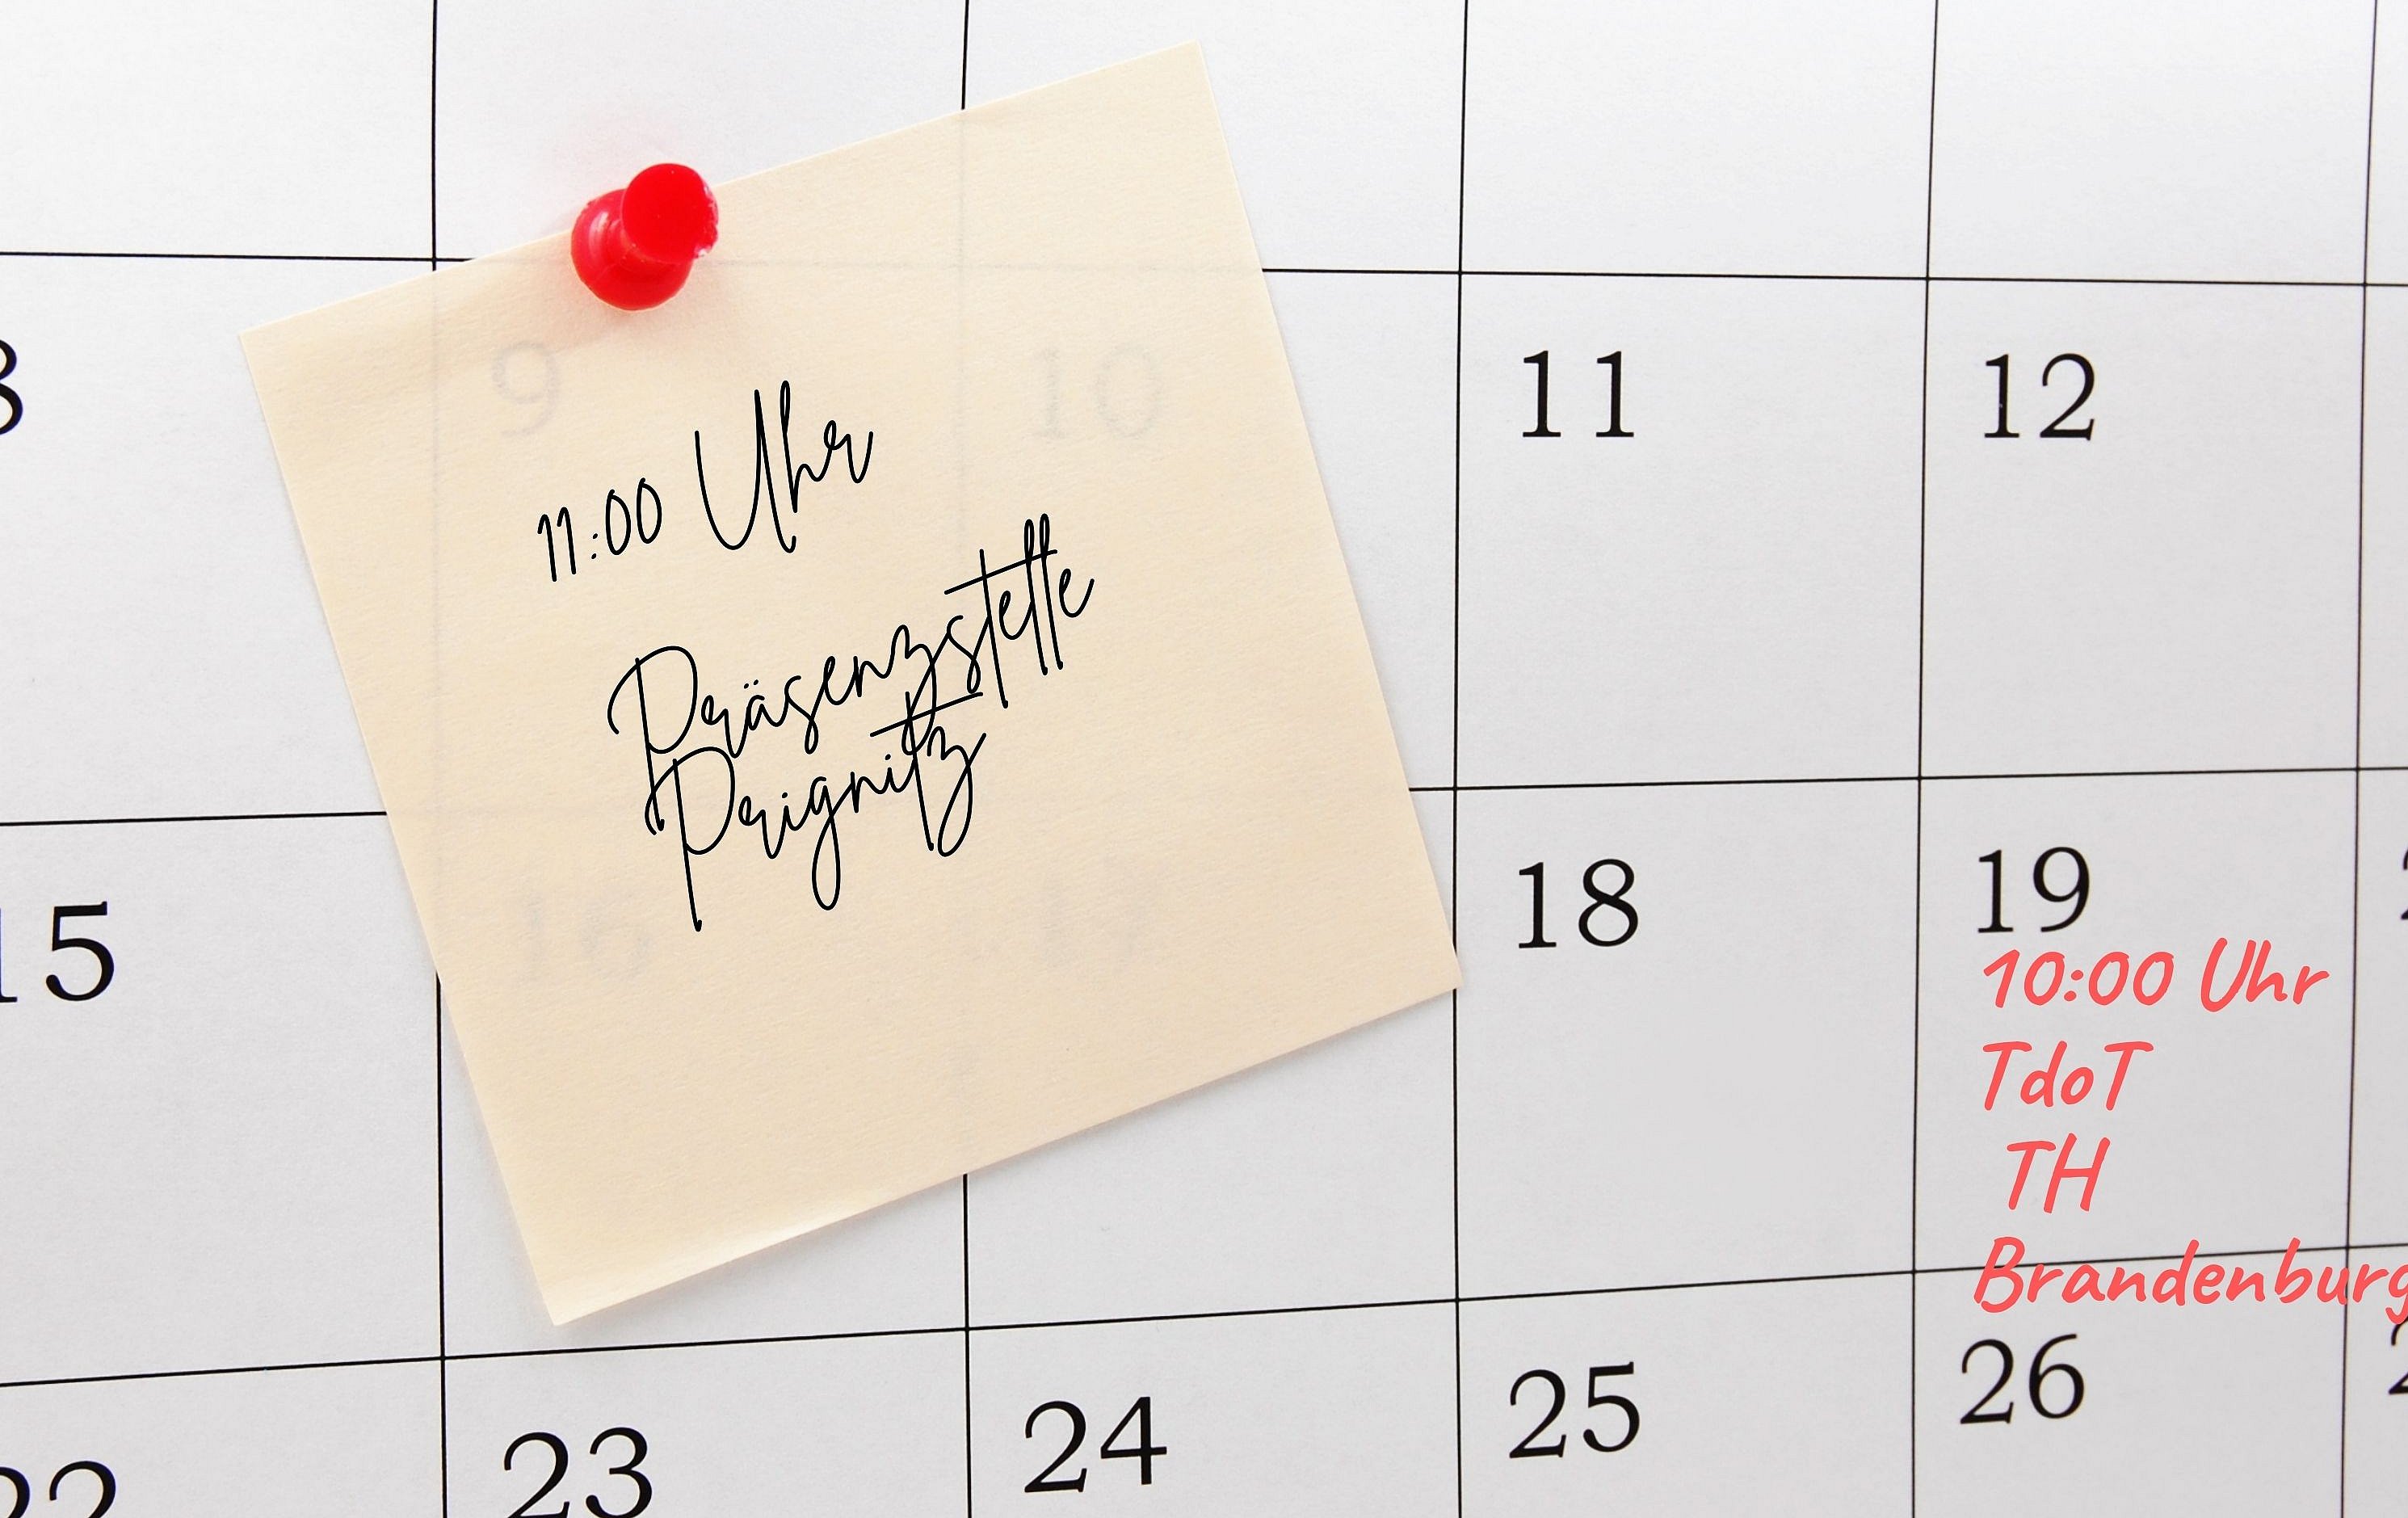 9
10
11
12
11:00 Uhr
Präsenzstelle
Prignitz
15
16
18
19
10:00 Uhr
TdoT
TH
Brandenburg
22
23
24
25
26